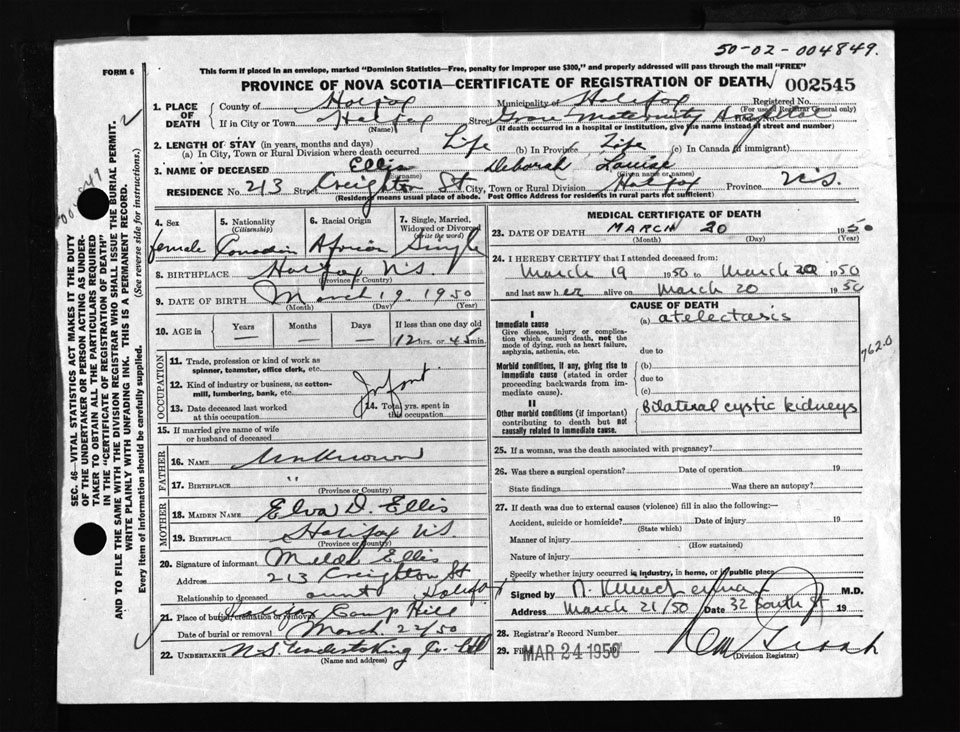 50-02-004849.
FORM 6
This form if placed in an envelope, marked "Dominion Statistics—Free, penalty for improper use $300," and properly addressed will pass through the mail "FREE"
PROVINCE OF NOVA SCOTIA—CERTIFICATE OF REGISTRATION OF DEATH
002545
1. PLACE OF DEATH
County of Halifax Municipality of Halifax Registered No.
(For use of Registrar General only)
If in City or Town Halifax Street Grace Maternity Hospital
(Name) (If death occurred in a hospital or institution, give the name instead of street and number)
2. LENGTH OF STAY (in years, months and days)
(a) In City, Town or Rural Division where death occurred Life (b) In Province Life (c) In Canada (if immigrant)
3. NAME OF DECEASED Ellis Deborah Louise
(Surname) (Given name or names)
RESIDENCE No. 213 Street Creighton St City, Town or Rural Division Halifax Province N.S.
(Residency means usual place of abode. Post Office Address for residents in rural parts not sufficient)
4. Sex female
5. Nationality (Citizenship) Canadian
6. Racial Origin African
7. Single, Married, Widowed or Divorced (write the word) Single
8. BIRTHPLACE Halifax N.S.
(Province or Country)
9. DATE OF BIRTH March 19 1950
(Month) (Day) (Year)
10. AGE in Years Months Days If less than one day old
12 hrs. or 45 min.
OCCUPATION
11. Trade, profession or kind of work as spinner, teamster, office clerk, etc.
12. Kind of industry or business, as cotton-mill, lumbering, bank, etc. Infant
13. Date deceased last worked at this occupation
14. Total yrs. spent in this occupation
15. If married give name of wife or husband of deceased
FATHER
16. NAME Unknown
17. BIRTHPLACE "
(Province or Country)
MOTHER
18. MAIDEN NAME Elva D. Ellis
19. BIRTHPLACE Halifax N.S.
(Province or Country)
20. Signature of informant Ellis
Address 213 Creighton St
Relationship to deceased aunt Halifax
21. Place of burial, cremation or removal Halifax Camp Hill
Date of burial or removal March 22/50
22. UNDERTAKER N.S. Undertaking Co.
(Name and address)
MEDICAL CERTIFICATE OF DEATH
23. DATE OF DEATH MARCH 20 1950
(Month) (Day) (Year)
24. I HEREBY CERTIFY that I attended deceased from:
March 19 1950 to March 20 1950
and last saw her alive on March 20 1950
CAUSE OF DEATH
I
Immediate cause (a) atelectasis
Give disease, injury or complication which caused death, not the mode of dying, such as heart failure, asphyxia, asthenia, etc.
due to
Morbid conditions, if any, giving rise to immediate cause (stated in order proceeding backwards from immediate cause).
(b)
due to
(c)
762.0
II
Other morbid conditions (if important) contributing to death but not causally related to immediate cause.
Bilateral cystic kidneys
25. If a woman, was the death associated with pregnancy?
26. Was there a surgical operation? Date of operation 19
State findings Was there an autopsy?
27. If death was due to external causes (violence) fill in also the following:—
Accident, suicide or homicide? Date of injury 19
(State which)
Manner of injury
(How sustained)
Nature of injury
Specify whether injury occurred in industry, in home, or in public place
M.D.
Address March 21/50 Date 32 South St 19
28. Registrar's Record Number
29. Filed MAR 24 1950
(Division Registrar)
SEC. 46—VITAL STATISTICS ACT MAKES IT THE DUTY OF THE UNDERTAKER OR PERSON ACTING AS UNDERTAKER TO OBTAIN ALL THE PARTICULARS REQUIRED IN THE "CERTIFICATE OF REGISTRATION OF DEATH" AND TO FILE THE SAME WITH THE DIVISION REGISTRAR WHO SHALL ISSUE THE BURIAL PERMIT.
WRITE PLAINLY WITH UNFADING INK. THIS IS A PERMANENT RECORD.
Every item of information should be carefully supplied. (See reverse side for instructions.)